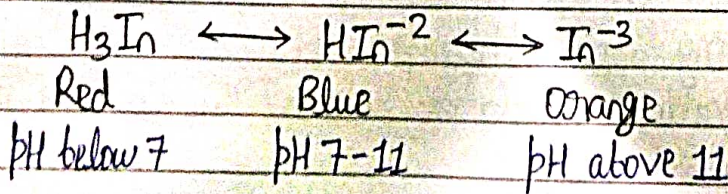 H₃In ⟷ HIn⁻² ⟷ In⁻³
Red Blue Orange
pH below 7 pH 7-11 pH above 11